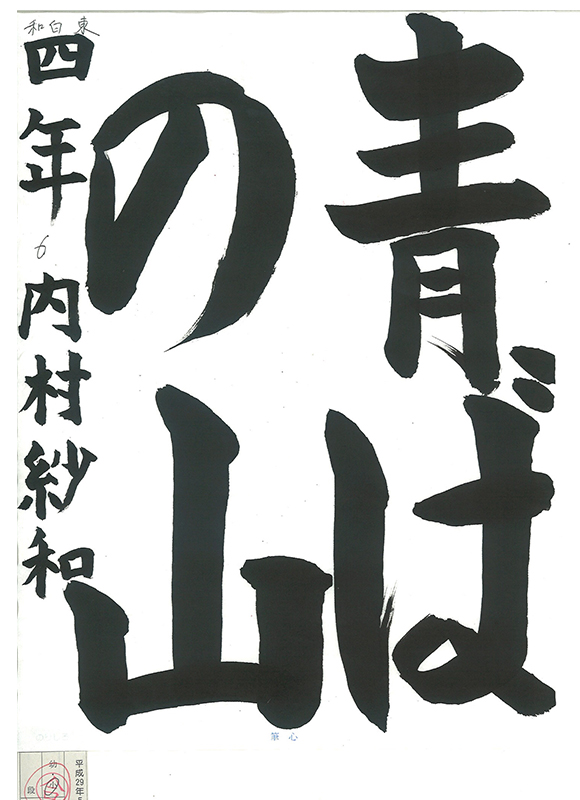 青ば
の山
和白東
四年 6 内村紗和
筆心
平成29年
幼
段